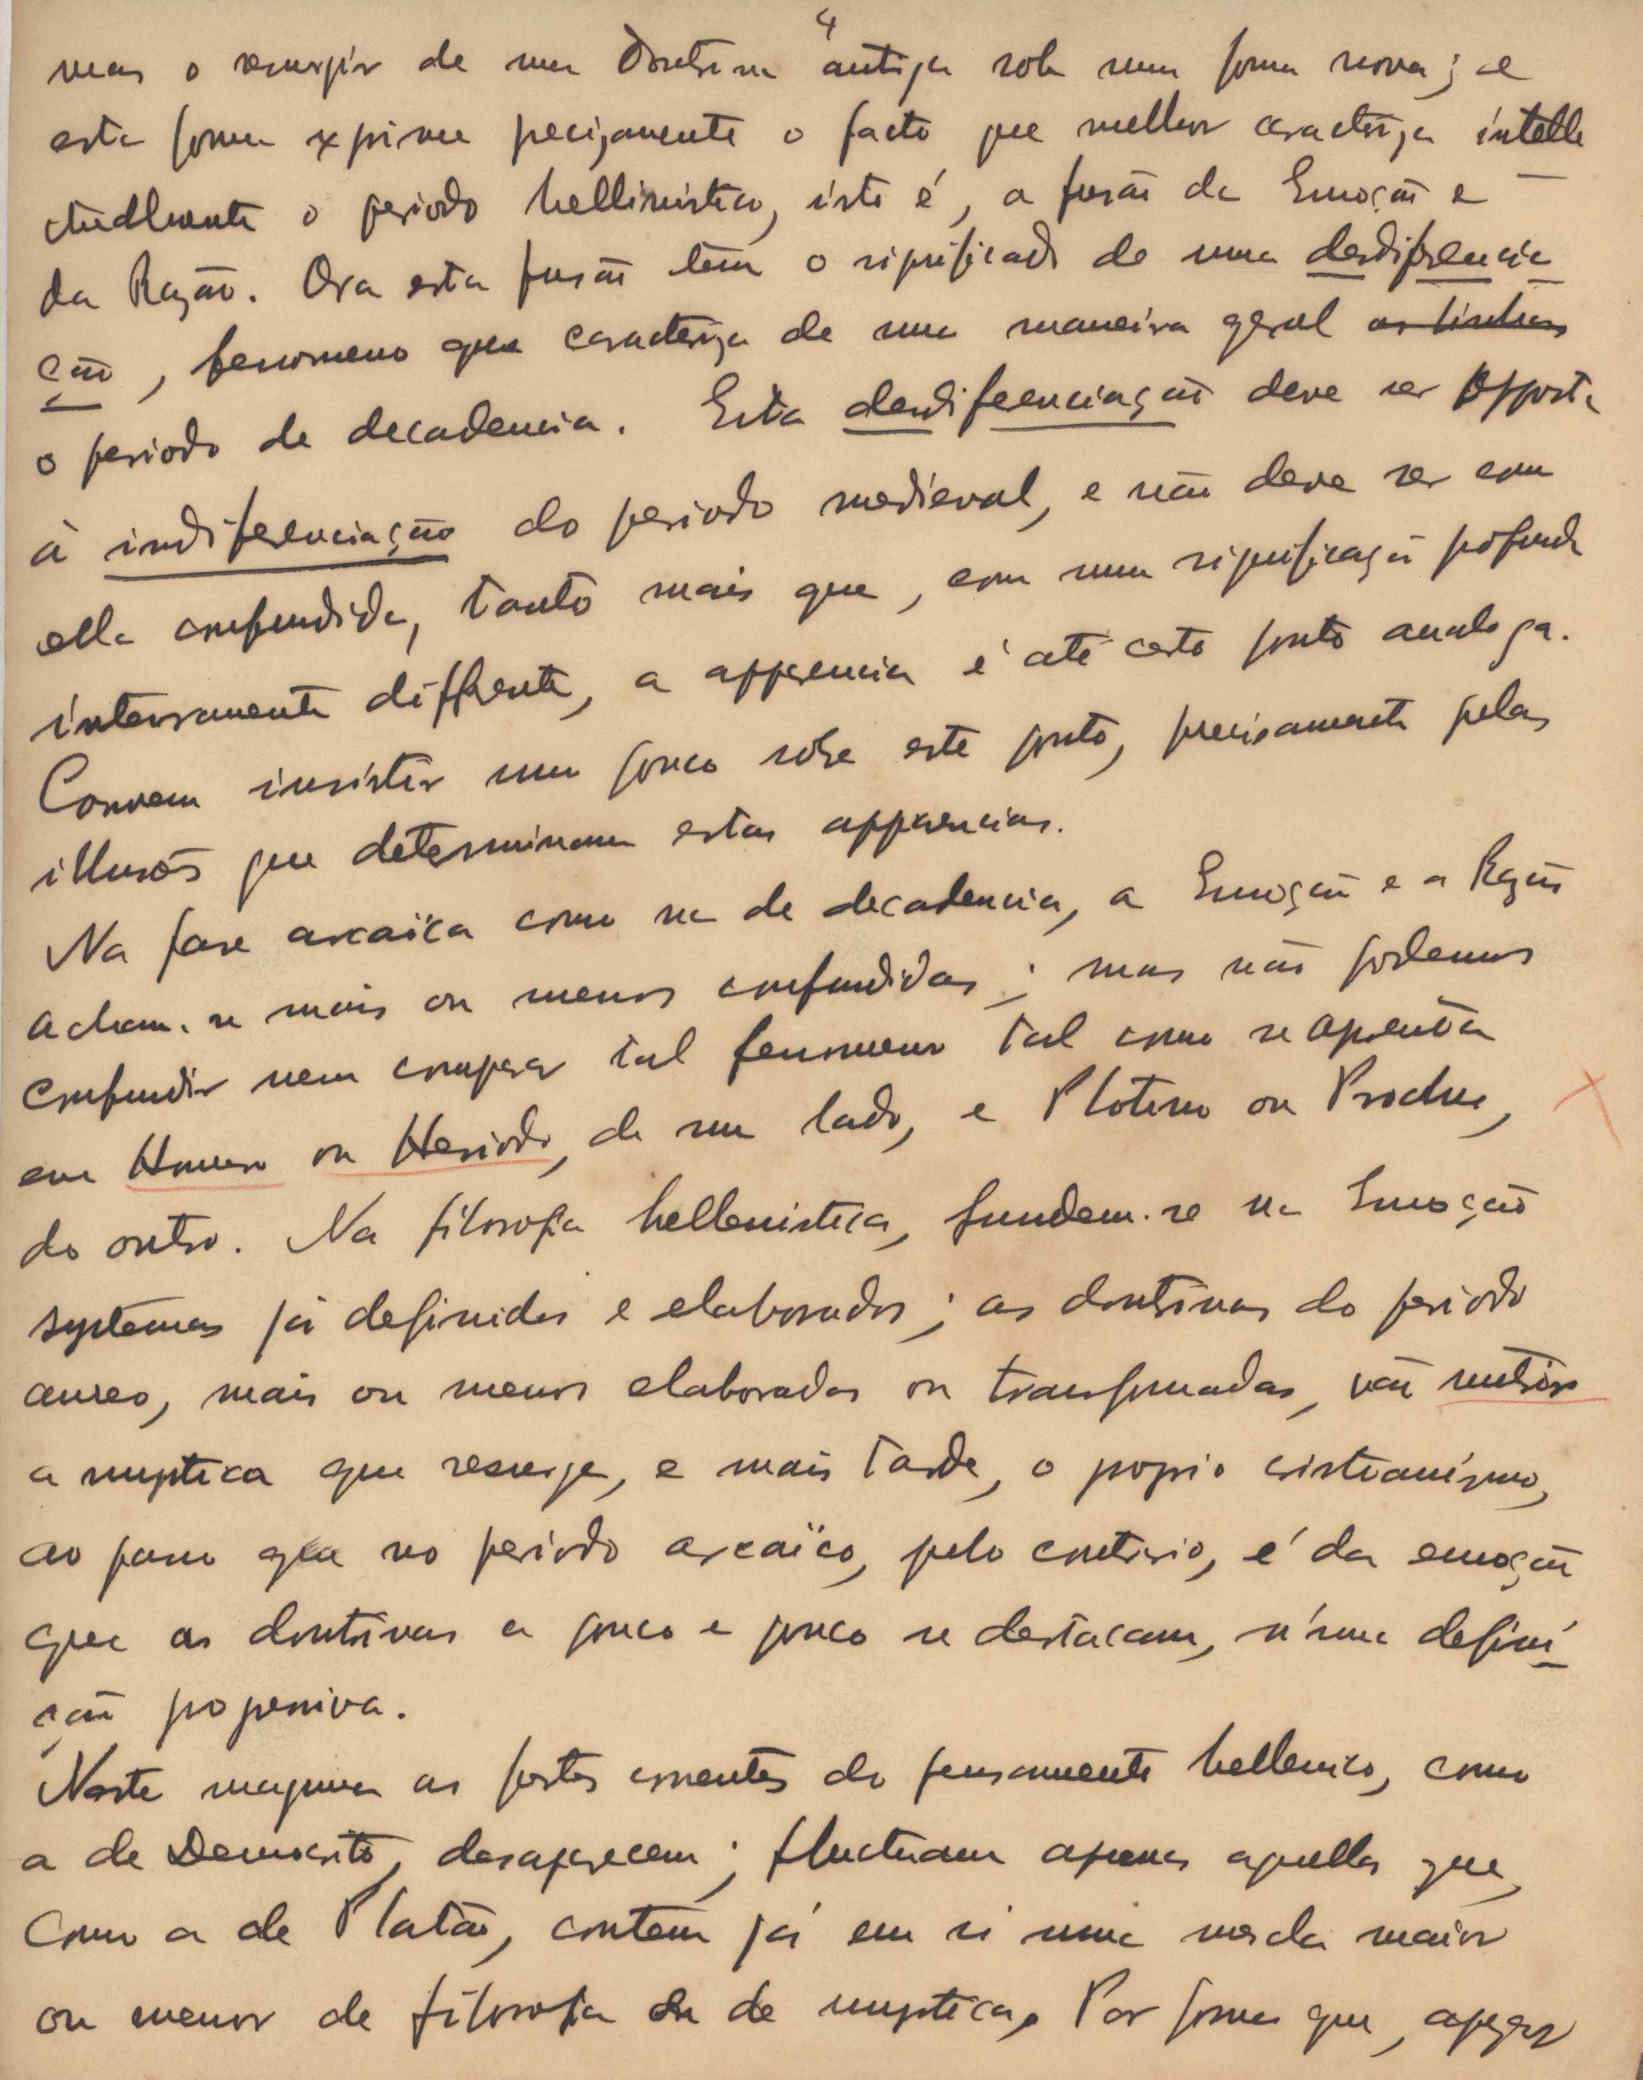 4
mas o resurgir de uma doutrina antiga sob uma forma nova; e
esta forma exprime precizamente o facto que melhor caracteriza intelle
ctualmente o periodo hellinistico, isto é, a fusão da Emoção e
da Razão. Ora esta fusão tem o significado de uma desdiferencia
ção, fenomeno que caracteriza de uma maneira geral as linhas
o periodo de decadencia. Esta desdiferenciação deve ser opposta
á indiferenciação do periodo medieval, e não deve ser com
ella confundida, tanto mais que, com uma significação profunda
inteiramente differente, a apparencia é até certo ponto analoga.
Convem insistir um pouco sobre este ponto, precisamente pelas
illusões que determinam estas apparencias.
Na fase arcaïca como na de decadencia, a Emoção e a Razão
acham-se mais ou menos confundidas; mas não podemos
confundir nem comparar tal fenomeno tal como se apresenta
em Homero ou Hesiodo, de um lado, e Plotino ou Proclus,
do outro. Na filosofia hellenistica, fundem-se na Emoção
systemas já definidos e elaborados; as doutrinas do periodo
aureo, mais ou menos elaboradas ou transformadas, vão nutrir
a mystica que resurge, e mais tarde, o proprio cristianismo,
ao passo que no periodo arcaïco, pelo contrario, é da emoção
que as doutrinas a pouco e pouco se destacam, n'uma defini
ção progressiva.
Neste magma as fortes correntes do pensamento hellenico, como
a de Democrito, desaparecem; fluctuam apenas aquellas que,
como a de Platão, contem já em si uma mescla maior
ou menor de filosofia ou de mystica. Por forma que, apezar